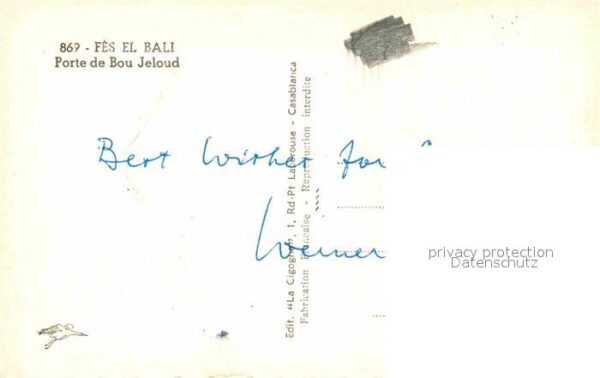 869 - FÈS EL BALI
Porte de Bou Jeloud
Best Wishes for
Werner
Edit. "La Cigogne", 1, Rd-Pt Lapérouse - Casablanca
Fabrication Française - Reproduction interdite
privacy protection
Datenschutz